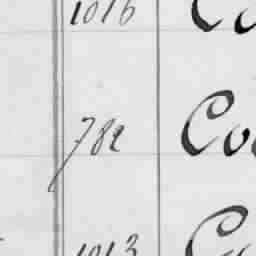 1016 Co
782 Coo
1013 Co